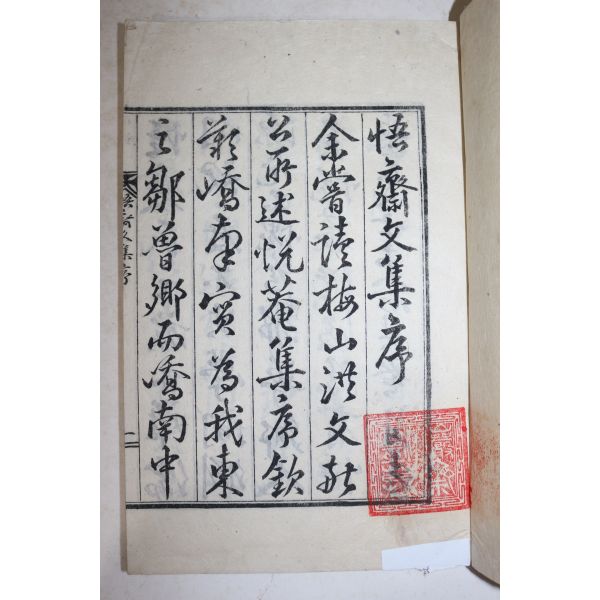 悟齋文集序
余嘗讀梅山洪文敬
公所述悅菴集序欽
歎嶠南實爲我東
之鄒魯鄉而嶠南中
悟齋文集序